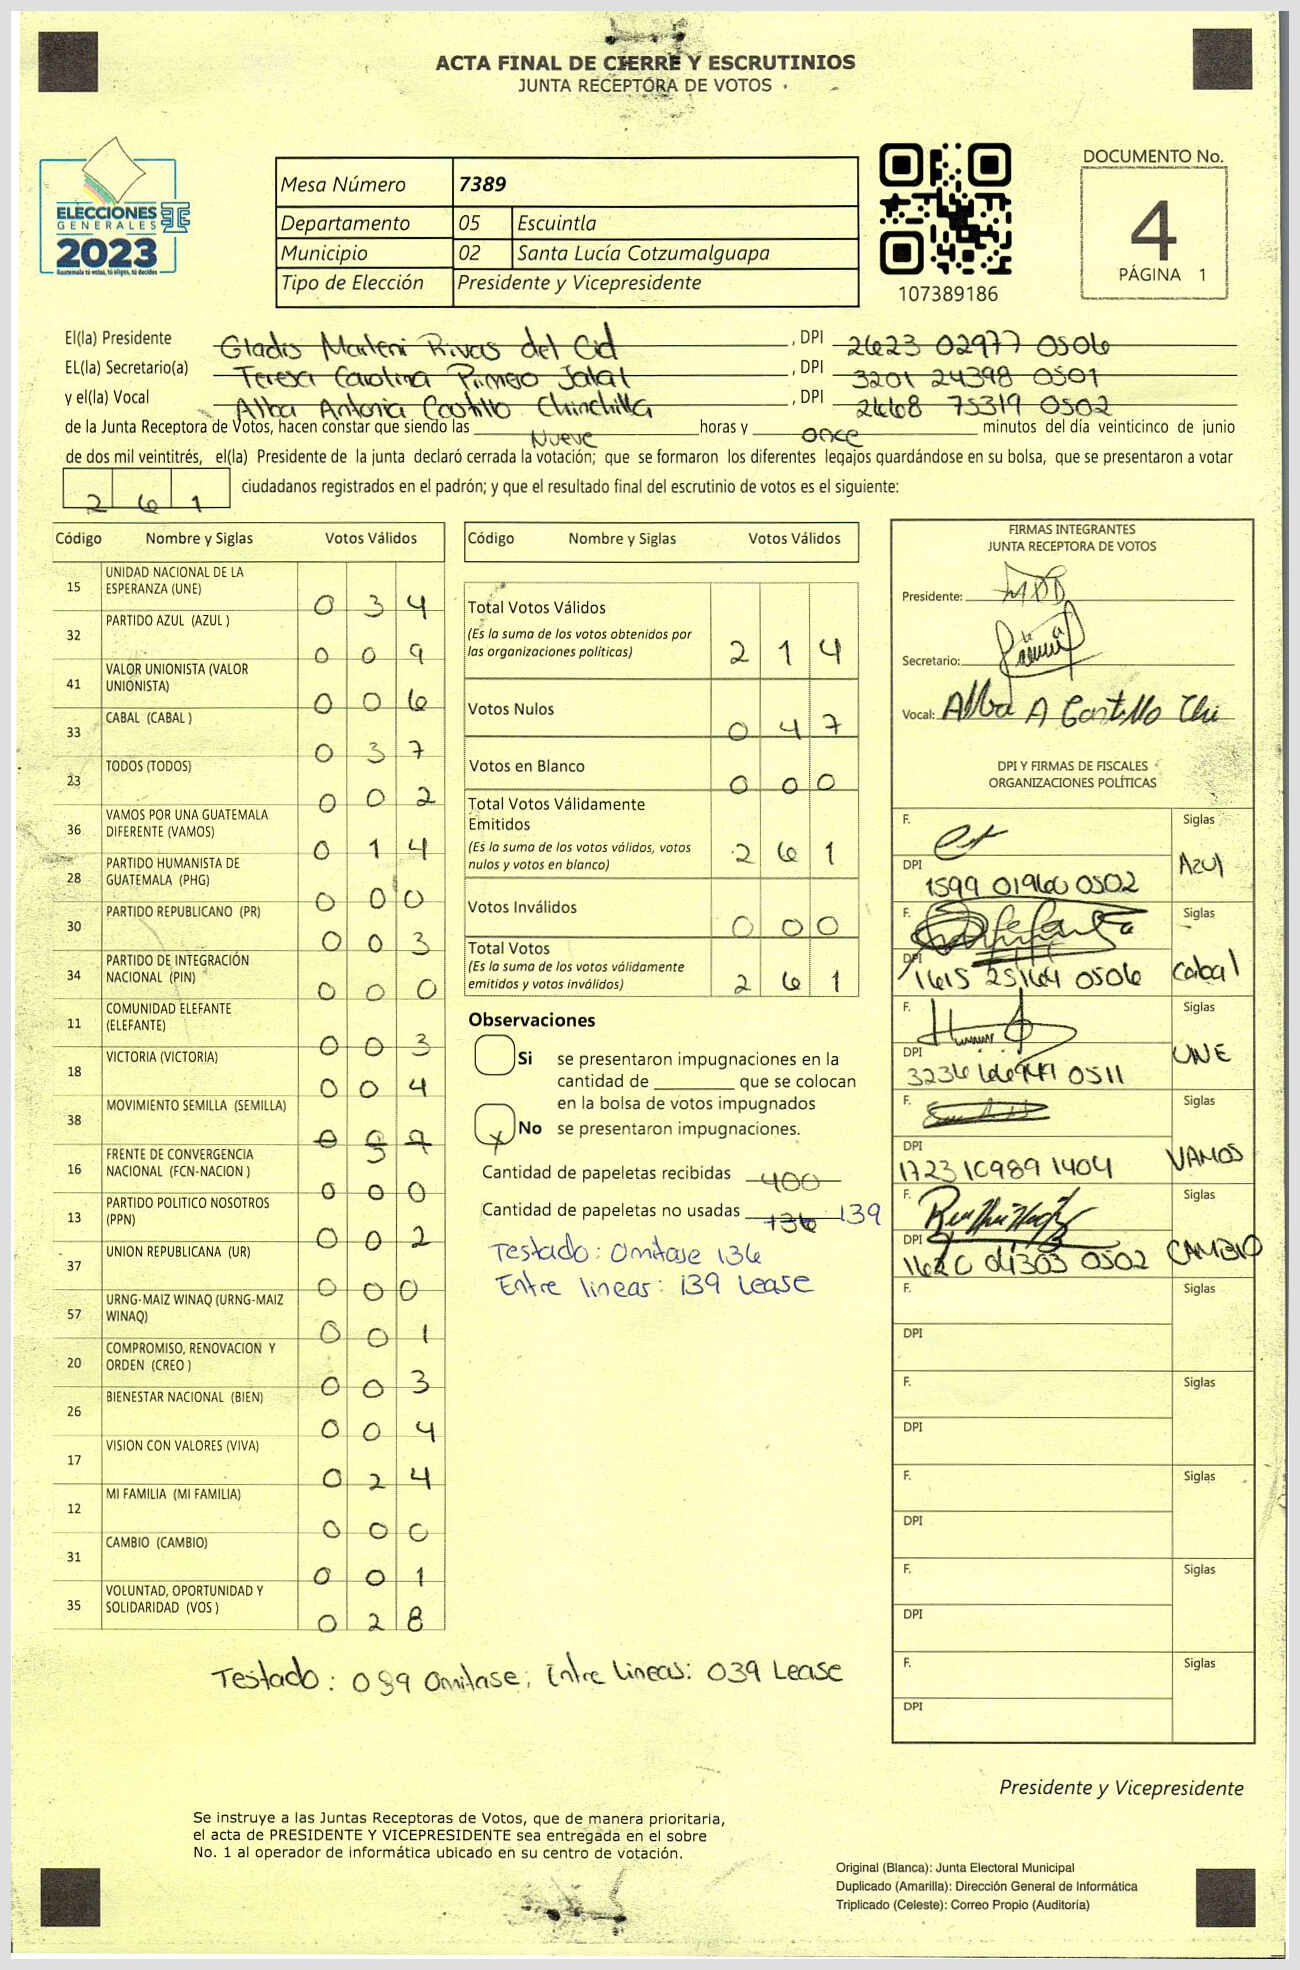 ACTA FINAL DE CIERRE Y ESCRUTINIOS
JUNTA RECEPTORA DE VOTOS
ELECCIONES
GENERALES
2023
Guatemala tú votas, tú eliges, tú decides
Mesa Número 7389
Departamento 05 Escuintla
Municipio 02 Santa Lucía Cotzumalguapa
Tipo de Elección Presidente y Vicepresidente
107389186
DOCUMENTO No.
4
PÁGINA 1
El(la) Presidente Gladis Marleni Rivas del Cid , DPI 2623 02977 0506
EL(la) Secretario(a) Teresa Carolina Jalal , DPI 3201 24398 0501
y el(la) Vocal Alba Antonia Castillo Chinchilla , DPI 2668 75319 0502
de la Junta Receptora de Votos, hacen constar que siendo las Nueve horas y once minutos del día veinticinco de junio
de dos mil veintitrés, el(la) Presidente de la junta declaró cerrada la votación; que se formaron los diferentes legajos guardándose en su bolsa, que se presentaron a votar
261 ciudadanos registrados en el padrón; y que el resultado final del escrutinio de votos es el siguiente:
Código Nombre y Siglas Votos Válidos
15 UNIDAD NACIONAL DE LA
ESPERANZA (UNE) 0 3 4
32 PARTIDO AZUL (AZUL ) 0 0 9
41 VALOR UNIONISTA (VALOR
UNIONISTA) 0 0 6
33 CABAL (CABAL ) 0 3 7
23 TODOS (TODOS) 0 0 2
36 VAMOS POR UNA GUATEMALA
DIFERENTE (VAMOS) 0 1 4
28 PARTIDO HUMANISTA DE
GUATEMALA (PHG) 0 0 0
30 PARTIDO REPUBLICANO (PR) 0 0 3
34 PARTIDO DE INTEGRACIÓN
NACIONAL (PIN) 0 0 0
11 COMUNIDAD ELEFANTE
(ELEFANTE) 0 0 3
18 VICTORIA (VICTORIA) 0 0 4
38 MOVIMIENTO SEMILLA (SEMILLA)
16 FRENTE DE CONVERGENCIA
NACIONAL (FCN-NACION ) 0 0 0
13 PARTIDO POLITICO NOSOTROS
(PPN) 0 0 2
37 UNION REPUBLICANA (UR) 0 0 0
57 URNG-MAIZ WINAQ (URNG-MAIZ
WINAQ) 0 0 1
20 COMPROMISO, RENOVACION Y
ORDEN (CREO ) 0 0 3
26 BIENESTAR NACIONAL (BIEN) 0 0 4
17 VISION CON VALORES (VIVA) 0 2 4
12 MI FAMILIA (MI FAMILIA) 0 0 0
31 CAMBIO (CAMBIO) 0 0 1
35 VOLUNTAD, OPORTUNIDAD Y
SOLIDARIDAD (VOS ) 0 2 8
Código Nombre y Siglas Votos Válidos
Total Votos Válidos
(Es la suma de los votos obtenidos por
las organizaciones políticas) 2 1 4
Votos Nulos 0 4 7
Votos en Blanco 0 0 0
Total Votos Válidamente
Emitidos
(Es la suma de los votos válidos, votos
nulos y votos en blanco) 2 6 1
Votos Inválidos 0 0 0
Total Votos
(Es la suma de los votos válidamente
emitidos y votos inválidos) 2 6 1
Observaciones
Si se presentaron impugnaciones en la
cantidad de ________ que se colocan
en la bolsa de votos impugnados
X No se presentaron impugnaciones.
Cantidad de papeletas recibidas 400
Cantidad de papeletas no usadas 136 139
Testado: Omitase 136
Entre lineas: 139 Lease
FIRMAS INTEGRANTES
JUNTA RECEPTORA DE VOTOS
Presidente:
Secretario:
Vocal: Alba A Castillo Chi
DPI Y FIRMAS DE FISCALES
ORGANIZACIONES POLÍTICAS
F. Siglas
DPI 1599 01960 0502 Azul
F. Siglas
DPI 1615 25164 0506 Cabal
F. Siglas
DPI 0511 UNE
F. Siglas
DPI 1723 10989 1404 VAMOS
F. Siglas
DPI 1620 04303 0502 CAMBIO
F. Siglas
DPI
F. Siglas
DPI
F. Siglas
DPI
F. Siglas
DPI
F. Siglas
DPI
Testado: 089 Omitase; Entre Lineas: 039 Lease
Presidente y Vicepresidente
Se instruye a las Juntas Receptoras de Votos, que de manera prioritaria,
el acta de PRESIDENTE Y VICEPRESIDENTE sea entregada en el sobre
No. 1 al operador de informática ubicado en su centro de votación.
Original (Blanca): Junta Electoral Municipal
Duplicado (Amarilla): Dirección General de Informática
Triplicado (Celeste): Correo Propio (Auditoría)